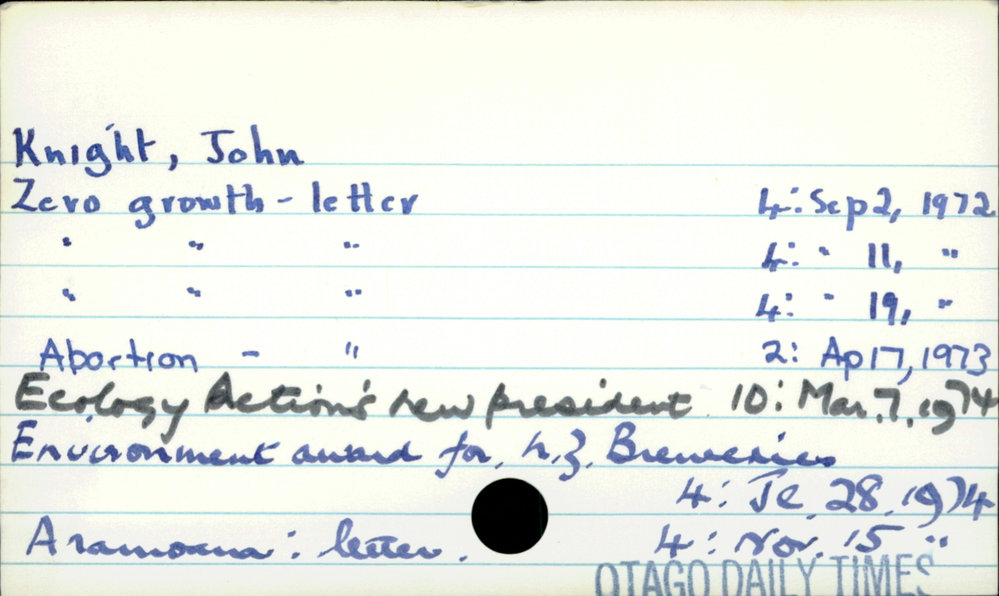 Knight, John
Zero growth - letter 4: Sep 2, 1972
" " " 4: " 11, "
" " " 4: " 19, "
Abortion - " 2: Ap 17, 1973
Ecology Action's new president 10: Mar. 7, 1974
Environment award for N.Z. Breweries
4: Je 28, 1974
Aramoana: letter. 4: Nov. 15 "
OTAGO DAILY TIMES